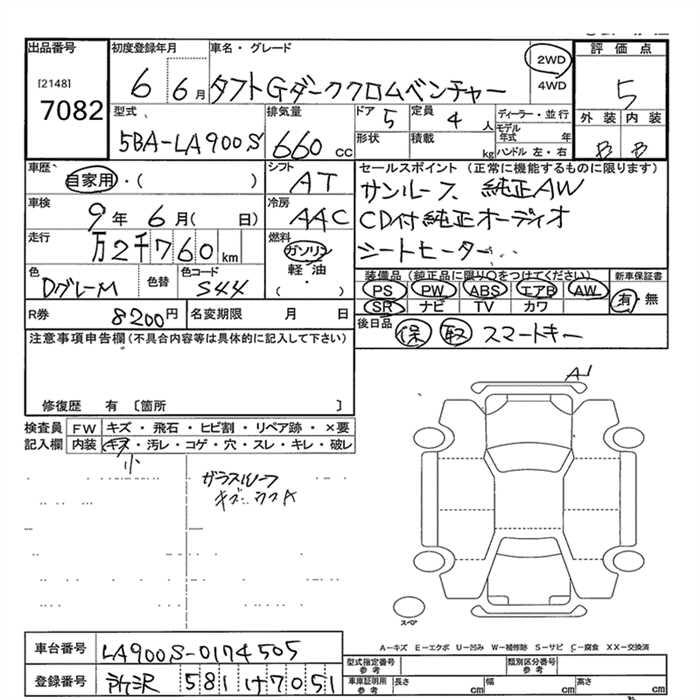 出品番号
[2148]
7082
初度登録年月
6 6月
車名・グレード
タフトGダーククロムベンチャー
2WD
4WD
評価点
5
外装 内装
B B
型式
5BA-LA900S
排気量
660 cc
ドア 5
定員 4 人
形状
積載 kg
ディーラー・並行
モデル年式 年
ハンドル 左・右
車歴
自家用・( )
シフト
AT
セールスポイント (正常に機能するものに限ります)
サンルーフ、純正AW
CD付純正オーディオ
シートヒーター
車検
9年 6月( 日)
冷房
AAC
走行
万2千760km
燃料
ガソリン
軽・油
( ・ )
色
DグレーM
色替
色コード
S44
装備品(純正品に限り○をつけてください)
PS PW ABS エアB AW
SR ナビ TV カワ
新車保証書
有・無
R券
8200円
名変期限 月 日
後日品
保 取 スマートキー
注意事項申告欄(不具合内容等は具体的に記入して下さい)
修復歴 有 〔箇所 〕
検査員
記入欄
FW キズ・飛石・ヒビ割・リペア跡・×要
内装 キズ・汚レ・コゲ・穴・スレ・キレ・破レ
小
ガラスルーフ
A1
スペア
A-キズ E-エクボ U-凹み W-補修跡 S-サビ C-腐食 XX-交換済
車台番号
LA900S-0174505
登録番号
所沢 581 け7051
型式指定番号 参考
類別区分番号 参考
車庫証明用 参考
長さ cm
幅 cm
高さ cm